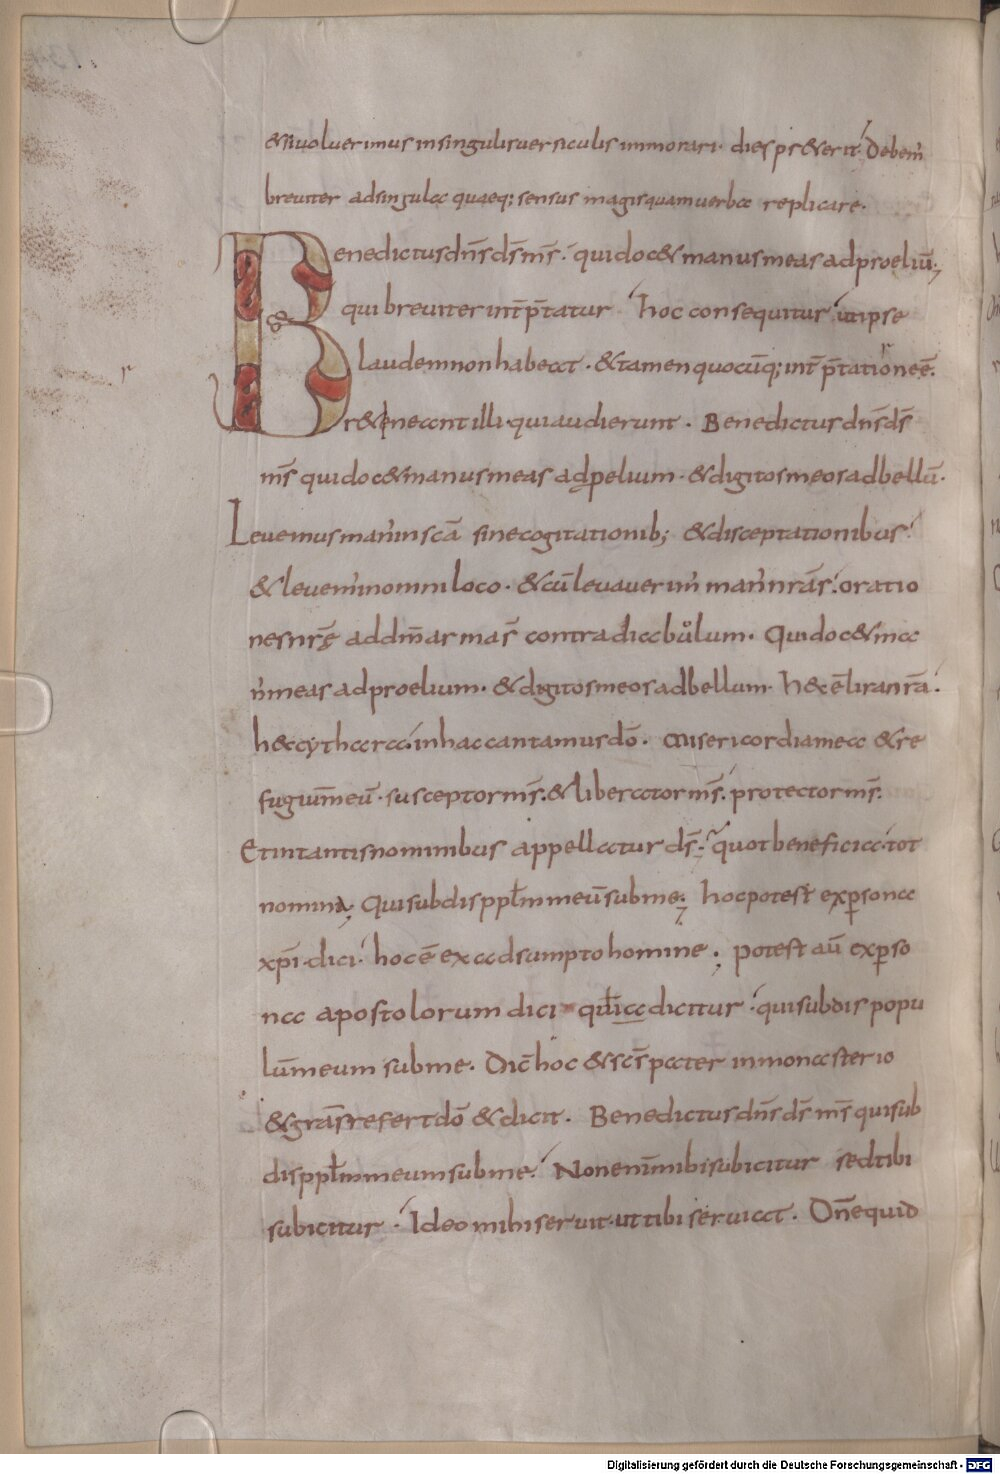 & si voluerimus in singulis versiculis immorari · dies pr&erit; Debem̄
breviter ad singula quaeq; sensus magis quam verba replicare.
Benedictus dn̄s ds̄ ms̄ · qui doc& manus meas ad proeliū;
qui breviter int̄p̄tatur hoc consequitur ut ipse
laudem non habeat · & tamen quocūq; int̄p̄tationeē.
r&eneant illi · qui audierunt · Benedictus dn̄s ds̄
ms̄ qui doc& manus meas ad pelium · & digitos meos ad bellū ·
Levemus man' in scā sine cogitationib; & disceptationibus
& levem' in omni loco · & cū levaverim' man' nrās · oratio
nes nrę̄ addm̄ar mas̄ contra diabůlum · Qui doc& ma
n' meas ad proelium · & digitos meos ad bellum · h&c ē lira nrā ·
h&c cythara · in hac cantamus dō · Misericordia mea & re
fugiūmeū · susceptor ms̄ · & liberator ms̄ · protector ms̄ ·
Et in tantis nominibus appellatur ds̄ · quot beneficia · tot
nomina; Qui subdis ppłm meū sub me; hoc potest ex p̱sona
xp̄i dici · hoc ē ex adsumpto homine; potest aū ex p̱so
na apostolorum dici qđ ica dicitur · qui subdis popu
lūmeum sub me · Dic̄ hoc & sc̄s pater in monasterio
& grās refert dō & dicit · Benedictus dn̄s ds̄ ms̄ qui sub
dis ppłm meum sub me · Non enī mihi subicitur sed tibi
subicitur · Ideo mihi servit · ut tibi serviat · Om̄e quid
Digitalisierung gefördert durch die Deutsche Forschungsgemeinschaft - DFG